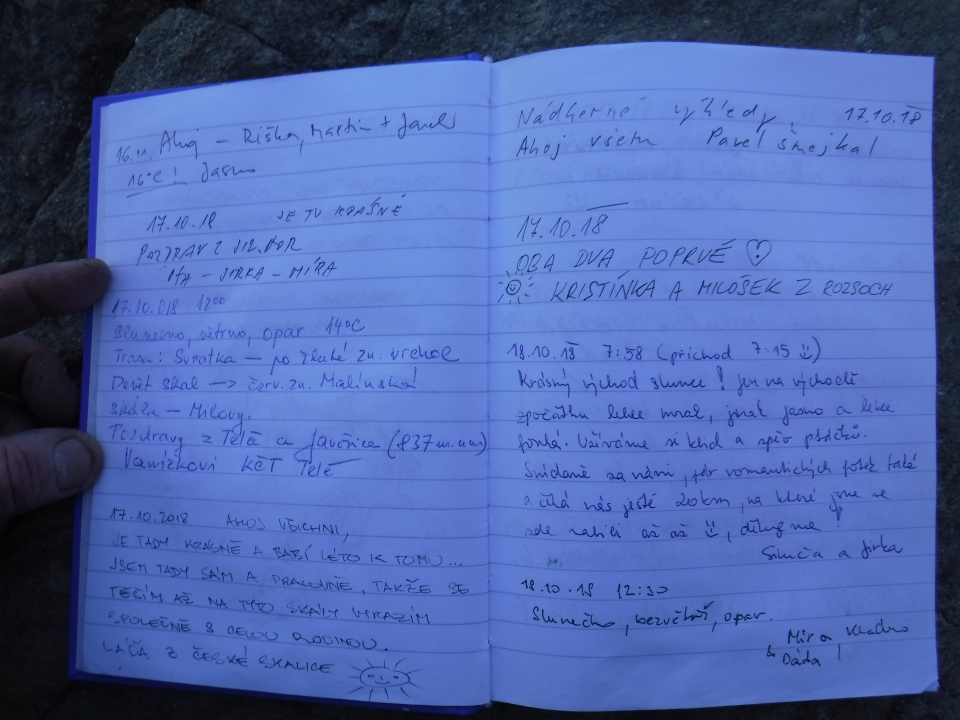 Ahoj – Riška, Martin + Janek
16°C! Jasno
17.10.18 JE TU KRÁSNĚ
POZDRAV Z JIZ. HOR
JIRKA – MÍRA
17.10.018 12⁰⁰
Slunečno, větrno, opar 14°C
Trasa: Svratka – po žluté zn. vrchol
Devět skal → červ. zn. Malínská
skála – Milovy.
Pozdravy z Telče a Javořice (837 m.n.m)
Vaníčkovi KČT Telč
17.10.2018 AHOJ VŠICHNI,
JE TADY KRÁSNĚ A BABÍ LÉTO K TOMU...
JSEM TADY SÁM A PRACOVNĚ, TAKŽE SE
TĚŠÍM AŽ NA TYTO SKÁLY VYRAZÍM
SPOLEČNĚ S CELOU RODINOU.
LÁĎA Z ČESKÉ SKALICE
Nádherné výhledy. 17.10.18
Ahoj všem Pavel Šmejkal
17.10.18
OBA DVA POPRVÉ
KRISTÍNKA A MILOŠEK Z ROZSOCH
18.10.18 7:58 (příchod 7:15)
Krásný východ slunce! Jen na východě
zpočátku lehce mrač., jinak jasno a lehce
fouká. Užíváme si klid a zpěv ptáčků.
Snídaně za námi, pár romantických fotek také
a čeká nás ještě 20km, na které jsme se
zde nabili až až, děkujeme!
Simča a Jirka
18.10.18 12:30
Slunečno, bezvětří, opar.
Mirka Kladno
Dáda